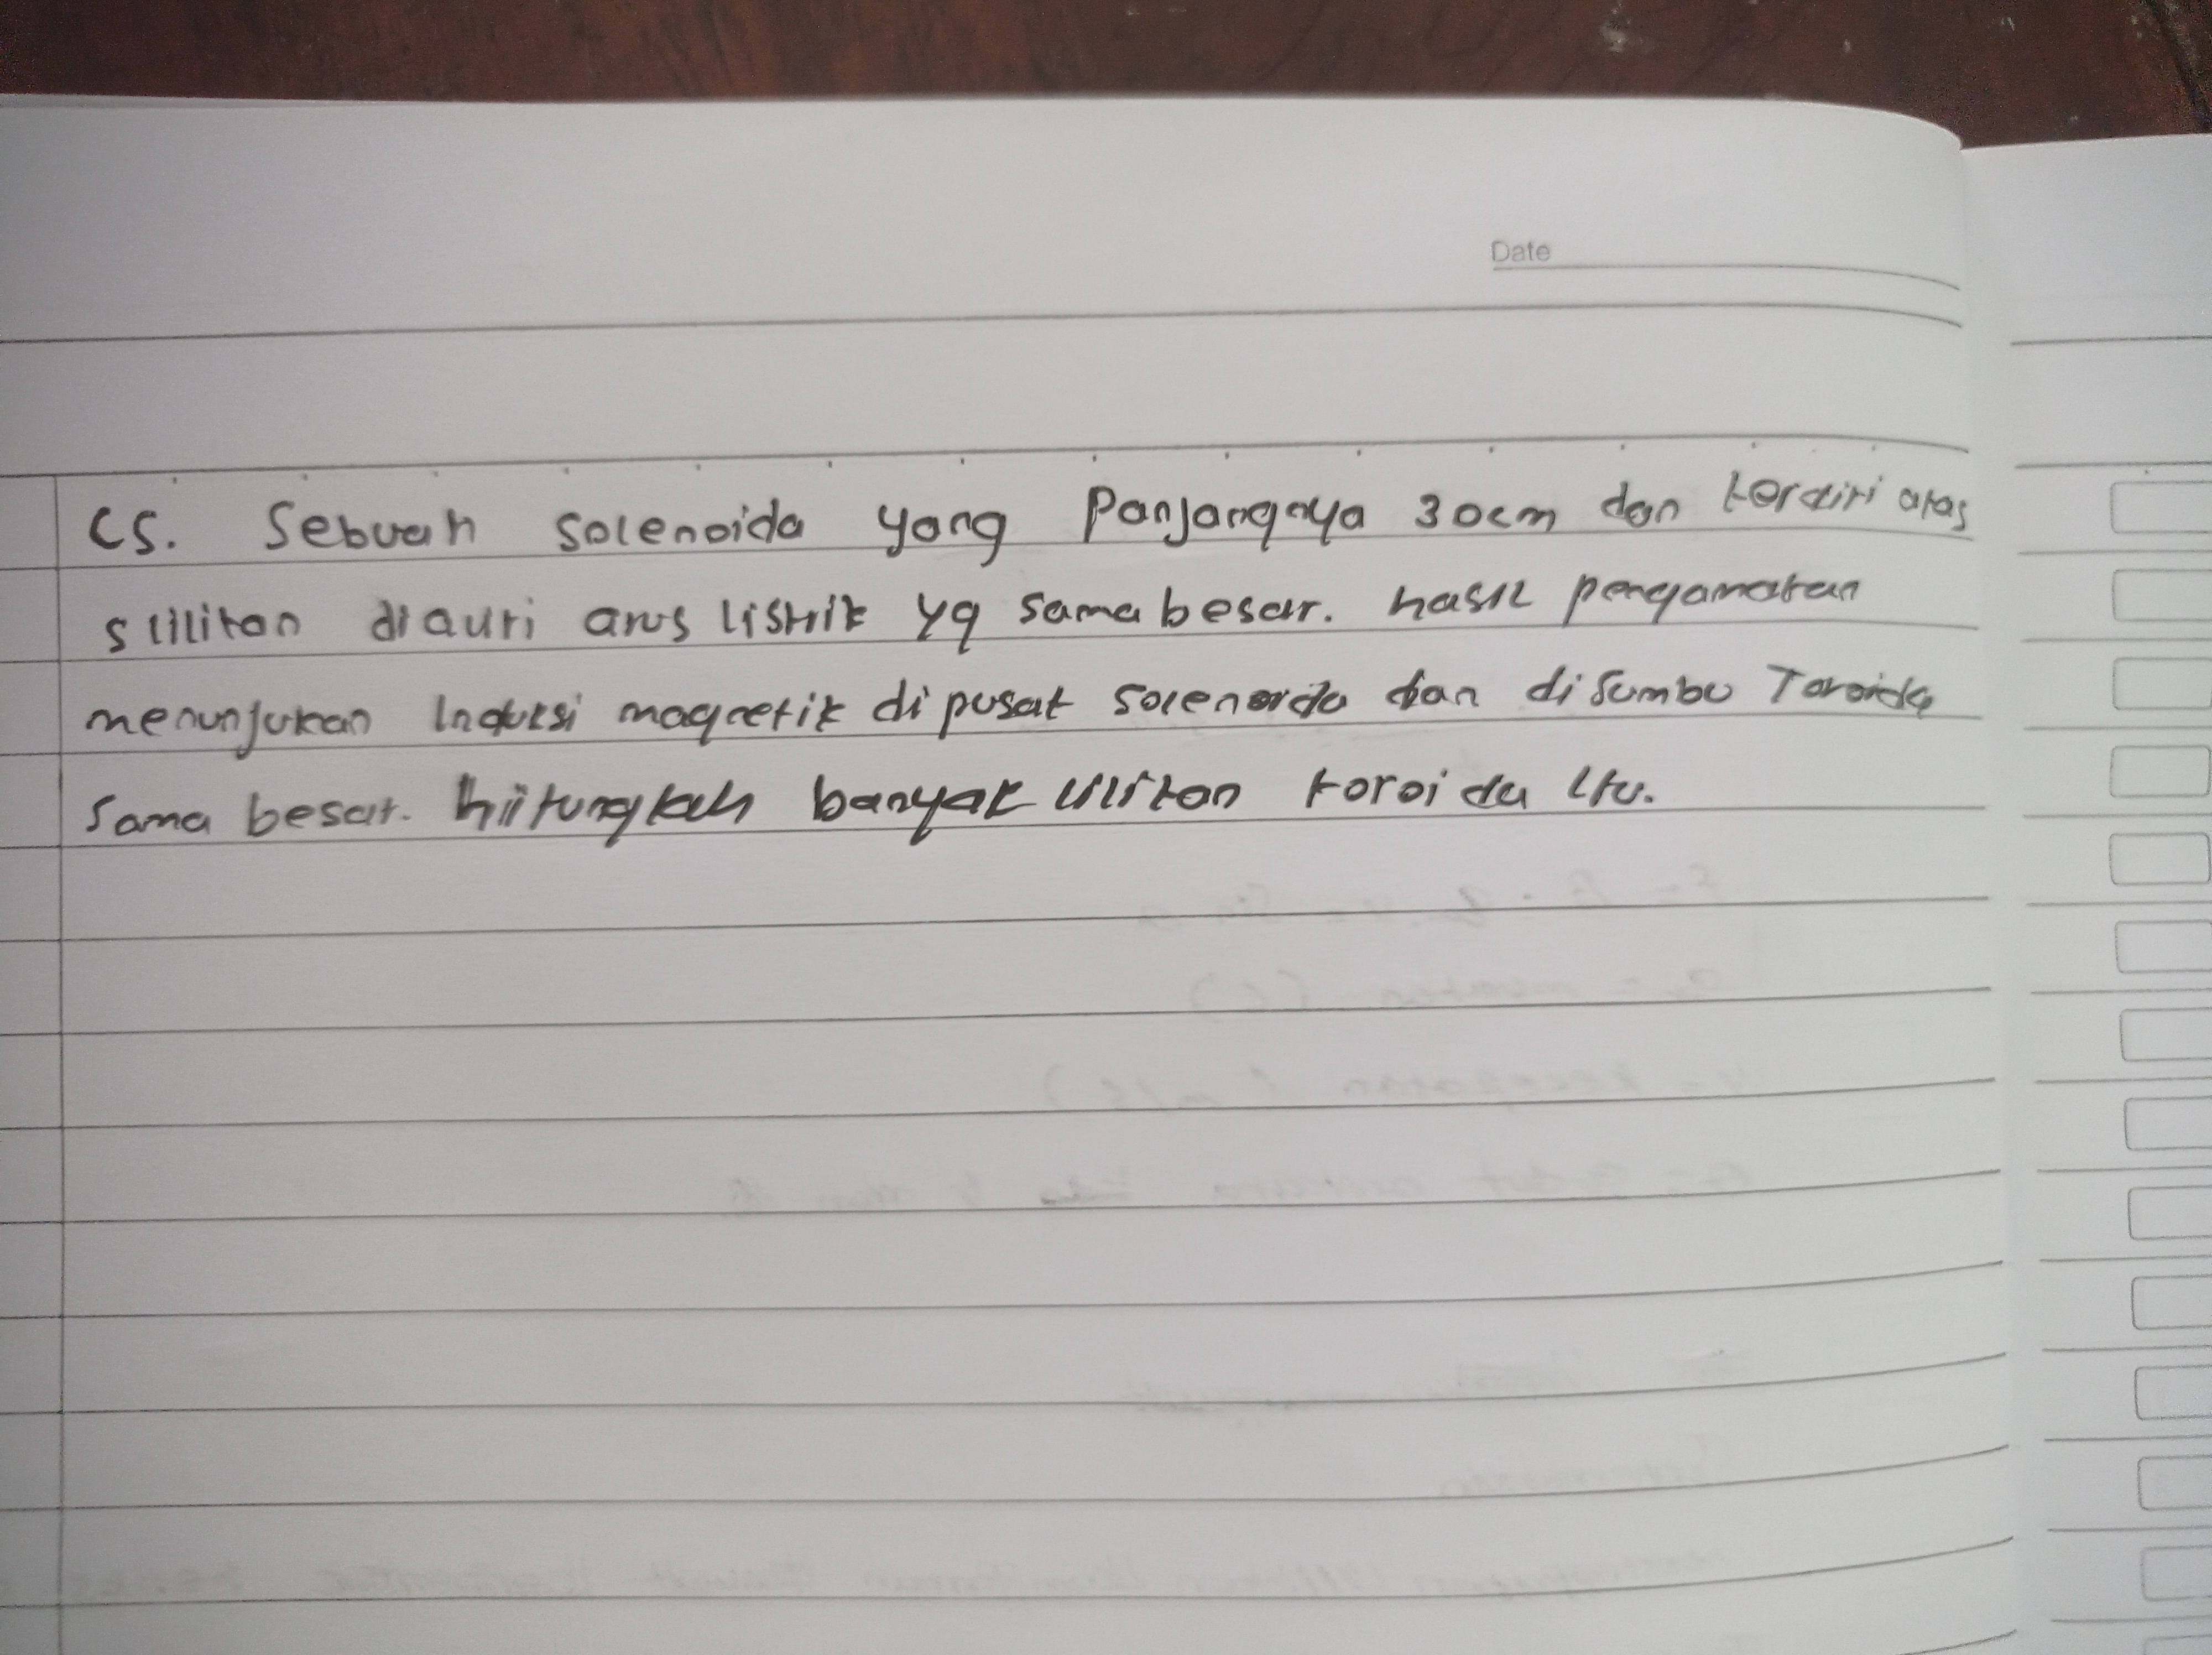 Date
CS. Sebuah solenoida yang Panjangnya 30cm dan terdiri atas
5 lilitan dialiri arus listrik yg sama besar. hasil pengamatan
menunjukan Induksi magnetik di pusat solenoida dan di sumbu Toroida
sama besar. hitunglah banyak lilitan toroida itu.